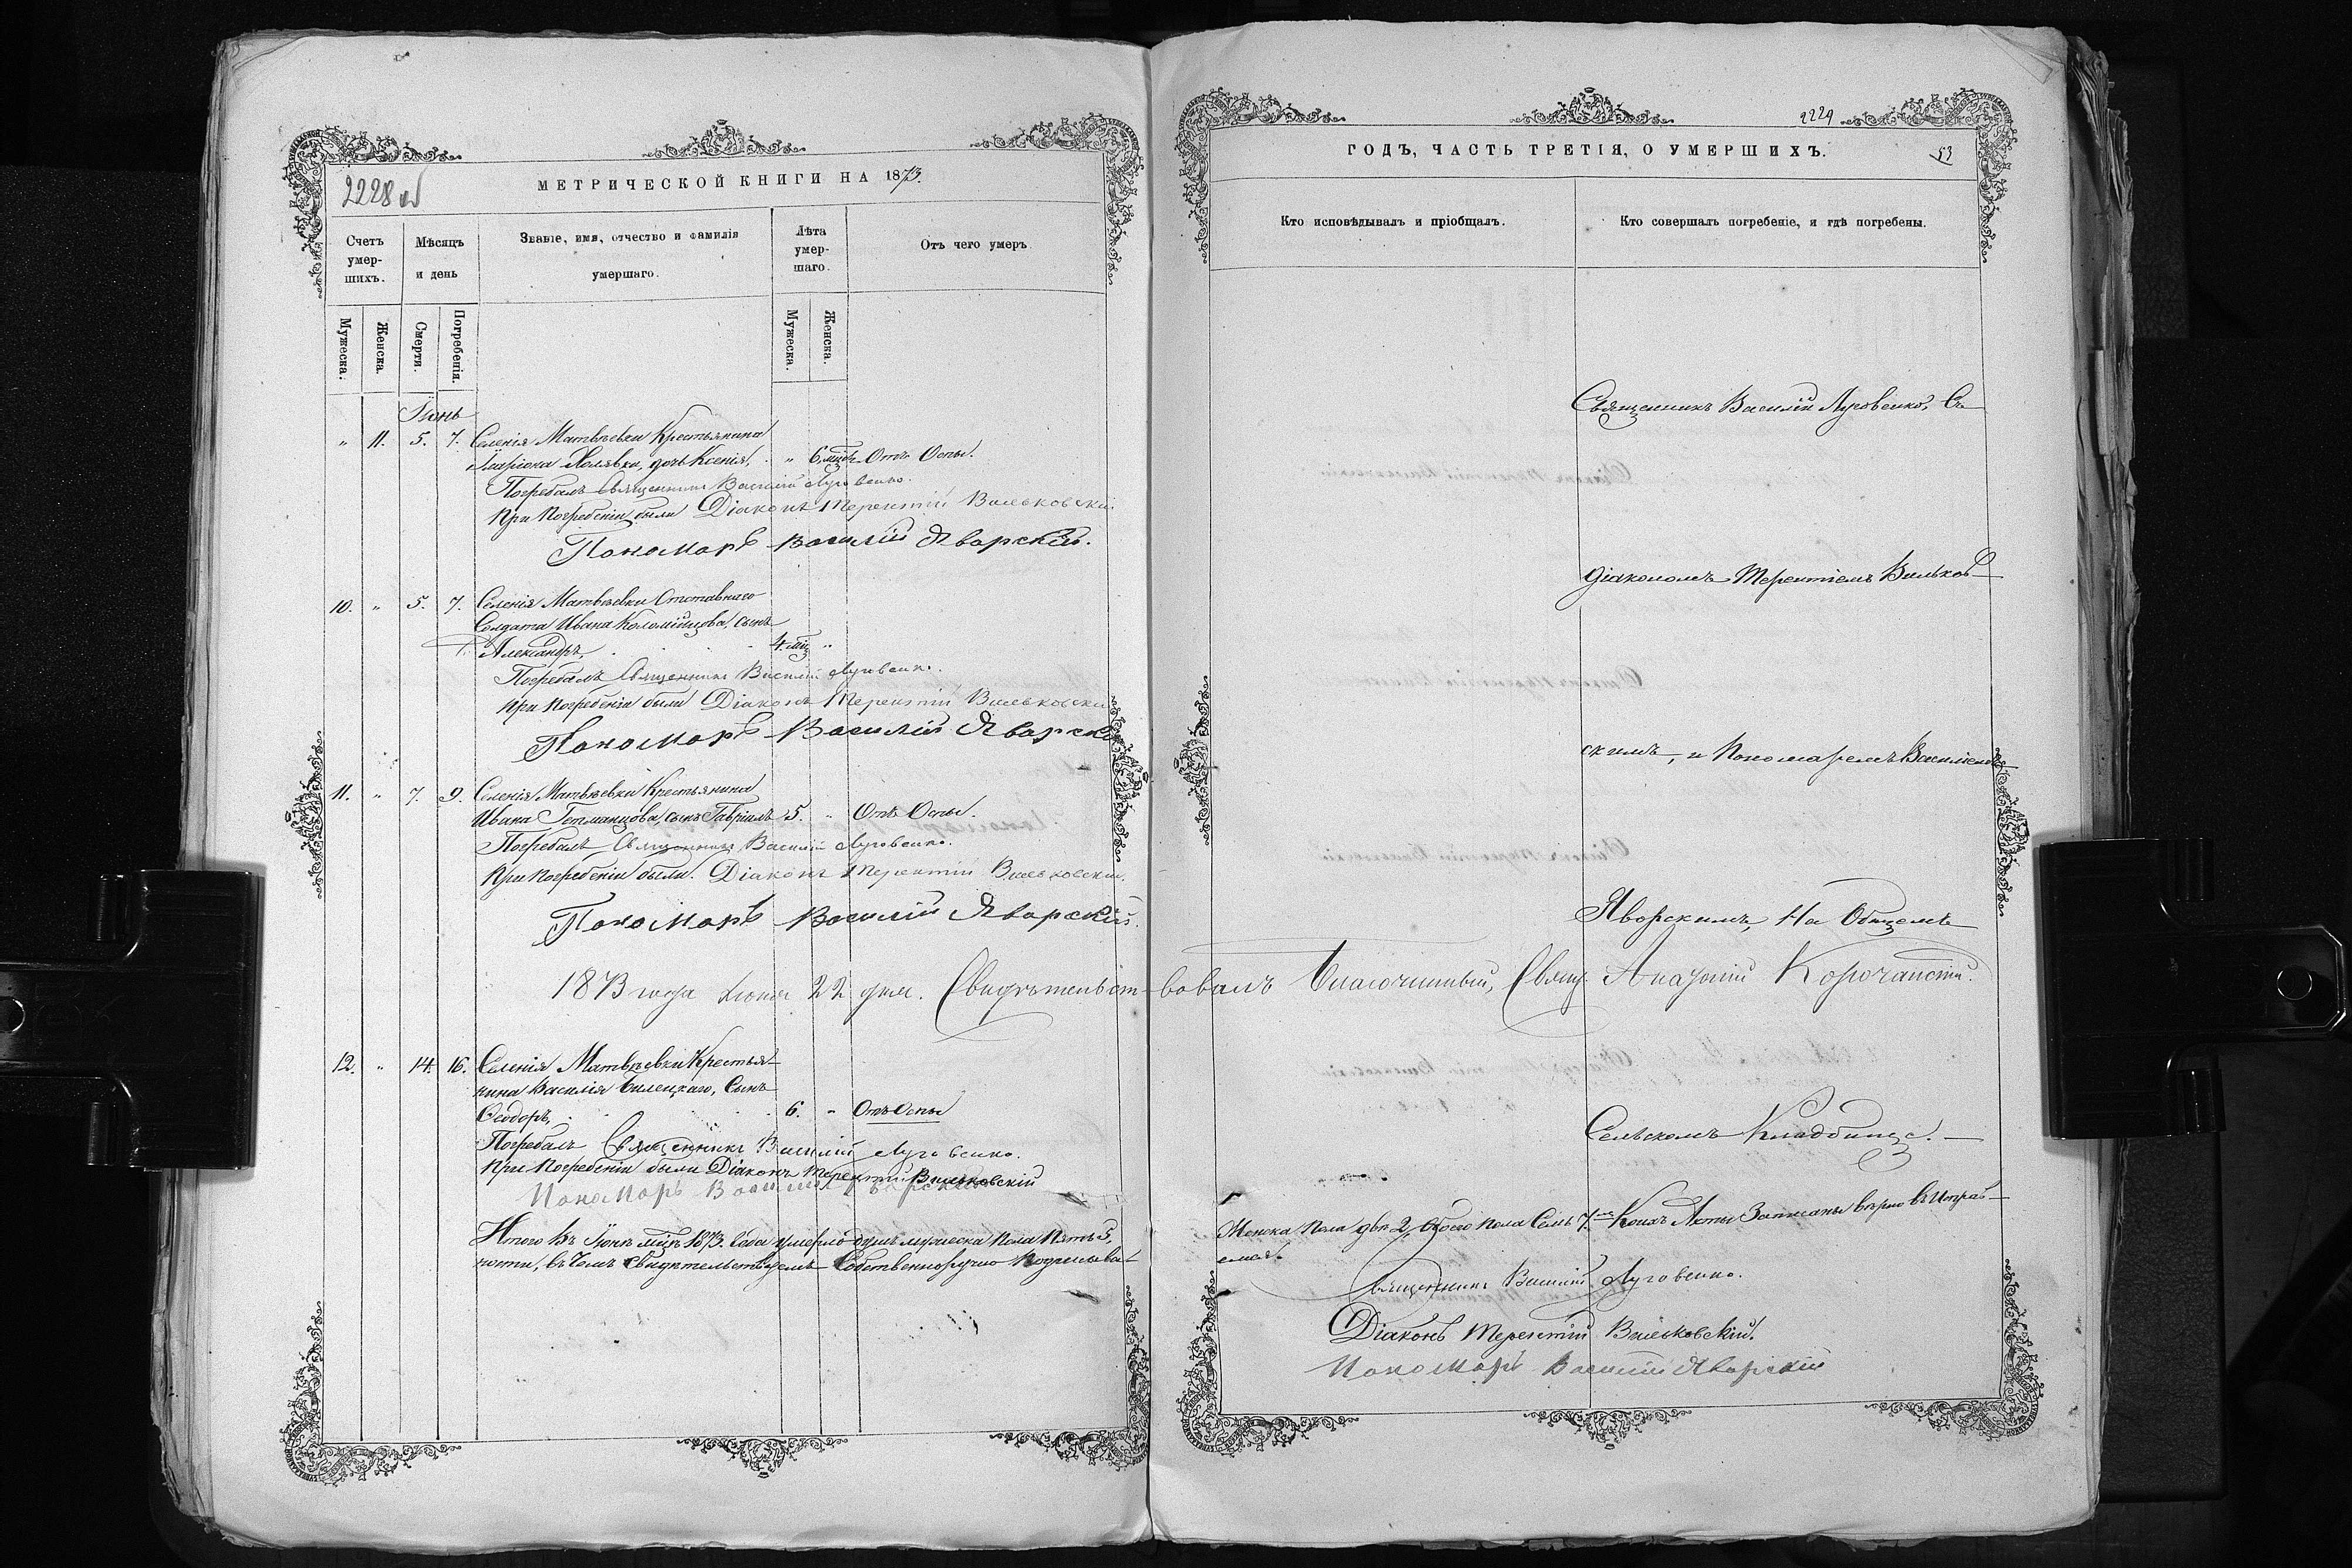 2228 об
МЕТРИЧЕСКОЙ КНИГИ НА 1873.
Счетъ умер-шихъ.
Мѣсяцъ и день
Званіе, имя, отчество и фамилія умершаго.
Лѣта умер-шаго.
Отъ чего умеръ
Мужеска.
Женска.
Смерти.
Погребенія.
Мужеска.
Женска.
Іюнь
„ 11. 5. 7. Селенія Матвѣевки Крестьянина
Холявка, дочь Ксенія, „ 6 мѣс. Отъ Оспы.
Погребалъ Священникъ Василій Луговенко.
При Погребеніи были Діаконъ Терентій Вильковскій
Пономарь Василій Яворскій.
10. „ 5. 7. Селенія Матвѣевки Отставнаго
Солдата Ивана Коломійцова, сынъ
Александръ, 4. мѣс „
Погребалъ Священникъ Василій Луговенко.
При Погребеніи были Діаконъ Терентій Вильковскі
Пономарь Василій Яворскі
11. „ 7. 9. Селенія Матвѣевки Крестьянина
Ивана Гетманцова, сынъ Гавріилъ 5. „ Отъ Оспы.
Погребалъ Священникъ Василій Луговенко.
При Погребеніи были. Діаконъ Терентій Вильковскій.
Пономарь Василій Яворскій.
1873 года Іюня 22 дня. Свидѣтельст-вовалъ Благочинный, Свящ.
12. „ 14. 16. Селенія Матвѣевки Крестья-
нина Василія Билецкаго, Сынъ
Ѳеодоръ, 6. „ Отъ Оспы
Погребалъ Священникъ Василій Луговенко.
При Погребеніи были Діаконъ Терентій Вильковскій
Пономарь Василій Яворскій
Итого въ Іюнѣ мѣс. 1873. Года умерло душъ мужеска Пола Пять 5,
ности, въ Чемъ Свидѣтельствуемъ Собственноручно Подписыва-
2229
53
ГОДЪ, ЧАСТЬ ТРЕТІЯ, О УМЕРШИХЪ.
Кто исповѣдывалъ и пріобщалъ.
Кто совершалъ погребеніе, и гдѣ погребены.
Священникъ Василій Луговенко, Съ
Діакономъ Терентіемъ Вильков-
скимъ, и Пономаремъ Василіемъ
Яворскимъ, На Общемъ
Сельскомъ Кладбищѣ.
Женска Пола двѣ 2, Обоего Пола Семь 7. Коихъ Акты Записаны вѣрно въ Исправ-
емся.
Священникъ Василій Луговенко.
Діаконъ Терентій Вильковскій.
Пономарь Василій Яворскій